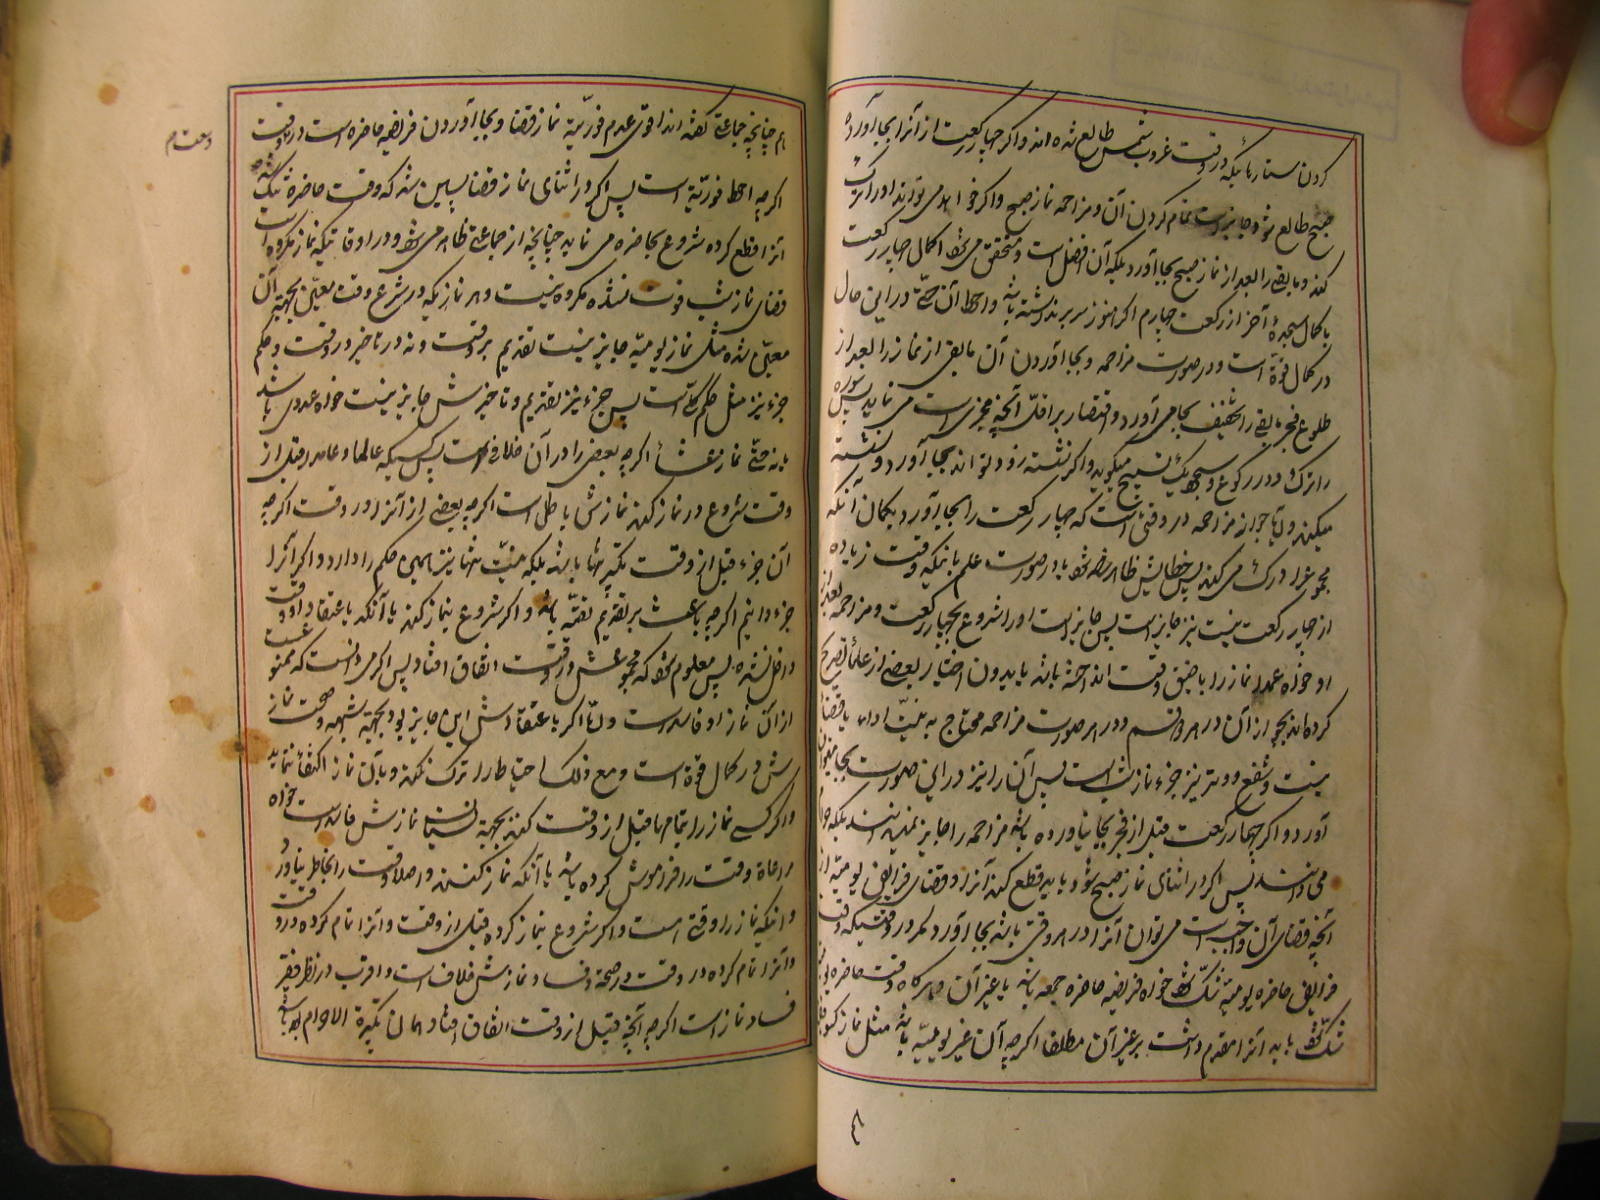 کردن ستارهائیکه در وقت غروب شمس طالع شده‌اند و اکر چهار رکعت از آنرا بجا آورده
صبح طالع شود جایز است تمام کردن آن و مزاحمه نماز صبح و اکر خواهد می تواند او را ترک
کند و مابقی را بعد از نماز صبح بجا آورد بلکه آن افضل است و متحقق می شود اکمال چهار رکعت
باکمال سجدهٔ آخر از رکعت چهارم اکر هنوز سر برنداشته باشد و در این حال
در کمال قوة است و در صورت مزاحمه و بجا آوردن آن مابقی از نماز را بعد از
طلوع فجر مابقی را خفیف بجا می آورد و اقتصار بر اقل آنچه مجزی است می نماید پس سوره
را ترک و در رکوع و سجود یک تسبیح میکوید و اکر نشسته زودتر تواند بجا آورد نشسته
میکند و آیا جواز مزاحمه در وقتی است که چهار رکعت را بجا آورد بکمان آنکه
مجموع را درک می کند پس خطایش ظاهر شود یا در صورت علم باینکه وقت زیاده
از چهار رکعت نیست نیز جایز است پس جایز است او را شروع بچهار رکعت و مزاحمه بعد از
او خواه عمدا نماز را با ضیق وقت انداخته باشد یا بدون اختیار بعضی از علما تصریح
کرده‌اند بجواز آن در هر دو قسم و در هر صورت مزاحمه محتاج به نیت ادا یا قضا
نیست و شفع و وتر نیز جزء نماز شب است پس آن را نیز در این صورت بجا
آورد و اکر چهار رکعت قبل از فجر بجا نیاورده باشد مزاحمه را جایز نمیدانند بلکه
می دانند پس اکر در اثنای نماز صبح شود باید قطع کند آنرا و قضای فرایض یومیه از
آنچه قضای آن واجب است می توان آنرا در هر وقتی باشد بجا آورد مکر در وقتیکه وقت
فرایض حاضره یومیه تنک شود خواه فریضه حاضره جمعه باشد یا غیر آن و هرکاه وقت حاضره
تنک شود باید آنرا مقدم داشت بر غیر آن مطلقا اکرچه آن غیر یومیه باشد مثل نماز کسوف
هم چنانچه جماعتی کفته‌اند اقوی عدم فوریة نماز قضا و بجا آوردن فریضه حاضره است در وقت
وسعت هم
اکرچه احوط فوریة است پس اکر در اثنای نماز قضا به بیند که وقت حاضره تنک شده
آنرا قطع کرده شروع بحاضره می نماید چنانچه از جماعتی ظاهر می شود و در اوقاتیکه نماز مکروه است
قضای نماز شب فوت شده مکروه نیست و هر نمازیکه در شرع وقت معین بجهة آن
معین شده مثل نماز یومیه جایز نیست تقدیم بر وقت و نه در تاخیر در وقت و حکم
جزء نیز مثل حکم کل است پس جزء نیز تقدیم و تاخیرش جایز نیست خواه عمدی باشد
یا نه حتی نماز عشا اکرچه بعضی را در آن خلافی است پس کسیکه عالما و عامدا قبل از
وقت شروع در نماز کند نمازش باطل است اکرچه بعضی از آنرا در وقت اکرچه
آن جزء قبل از وقت تکبیر تنها باشد بلکه نیت تنها نیز همین حکم را دارد اکر آنرا
جزء دانیم اکرچه باعث بر تقدیم تقیه باشد و اکر شروع بنماز کند با آنکه باعتقاد او وقت
داخل نشده پس معلوم شود که مجموعش در وقت اتفاق افتاد پس اکر می دانست که ممنوع است
از آن نماز او فاسد است و اما اکر باعتقادش این جایز بود بجهة شبهه صحت نماز
ش در کمال قوة است و مع ذلک احتیاط را ترک نکند و بآن نماز اکتفا ننماید
و اکر کسی نماز را بتمامها قبل از وقت کند بجهة نسیان نمازش فاسد است خواه
مراعاة وقت را فراموش کرده باشد یا آنکه نماز کند و اصلا وقت را بخاطر نیاورد
و اینکه نماز را وقتی است و اکر شروع بنماز کرده قبل از وقت و آنرا تمام کرده در وقت
و آنرا تمام کرده در وقت در صحة و فساد نمازش خلاف است و اقرب در نظر فقیر
فساد نماز است اکرچه آنچه قبل از وقت اتفاق افتاد همان تکبیرة الاحرام باشد